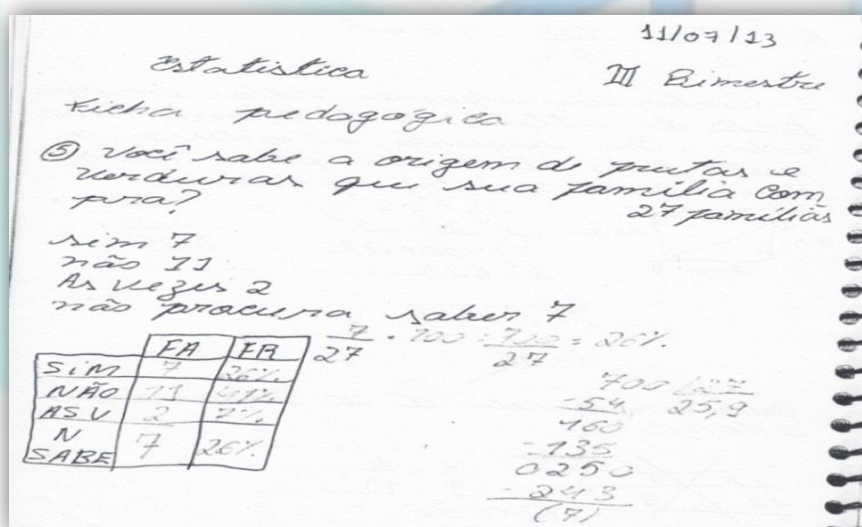 11/07/13
Estatistica
III Bimestre
Ficha pedagógica
⑤ Você sabe a origem de frutas e
verduras que sua família com
pra?
27 famílias
sim 7
não 11
As vezes 2
não procura saber 7
FA FR
SIM 7 26%
NÃO 11 41%
AS V 2 7%
N
SABE 7 26%
7/27 . 100 = 700/27 = 26%
700 27
-54 25,9
160
-135
0250
-243
(7)